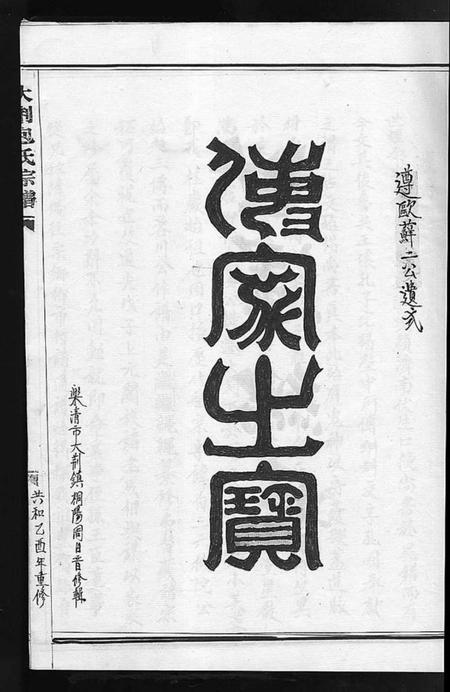 遵歐蘇二公遺式
傳家之寶
樂清市大荆鎮桐陽周自音修輯
大荆包氏宗譜
共和乙酉年重修